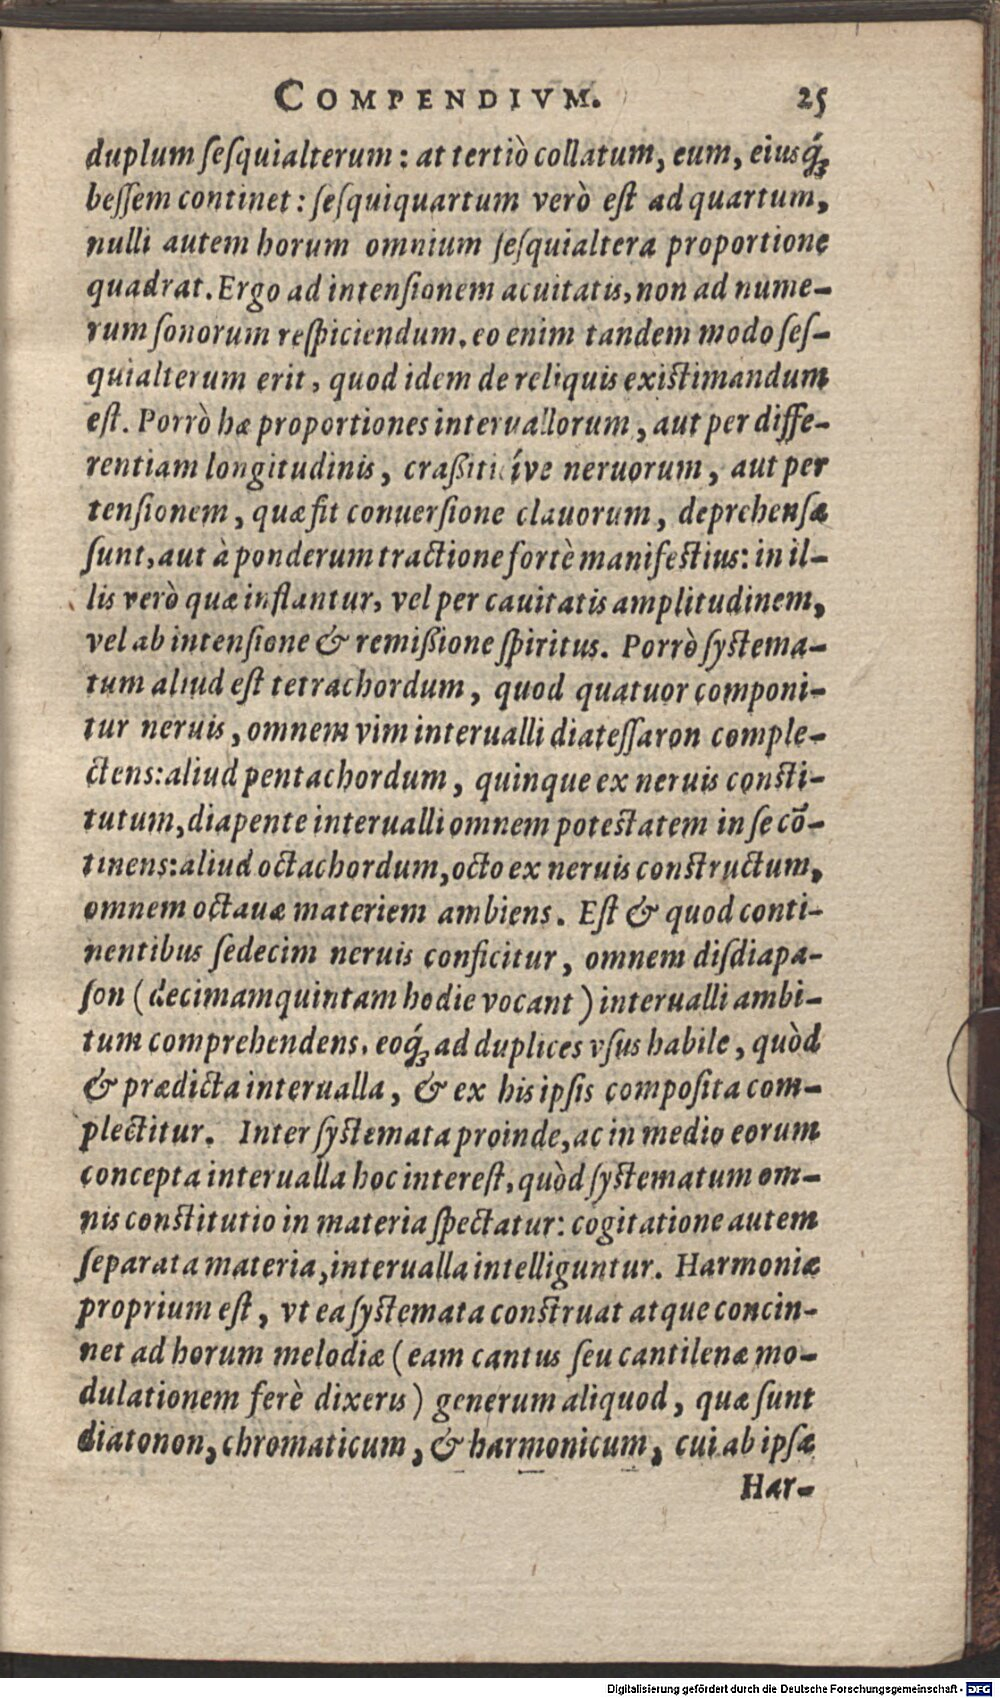 COMPENDIVM. 25
duplum ſeſquialterum: at tertiò collatum, eum, eiusq́;
beſſem continet: ſeſquiquartum verò eſt ad quartum,
nulli autem horum omnium ſeſquialtera proportione
quadrat. Ergo ad intenſionem acuitatis, non ad nume-
rum ſonorum reſpiciendum. eo enim tandem modo ſeſ-
quialterum erit, quod idem de reliquis existimandum
eſt. Porrò hæ proportiones interuallorum, aut per diffe-
rentiam longitudinis, craßitieíve neruorum, aut per
tenſionem, quæ fit conuerſione clauorum, deprehenſæ
ſunt, aut à ponderum tractione fortè manifestius: in il-
lis verò quæ inflantur, vel per cauitatis amplitudinem,
vel ab intenſione & remißione ſpiritus. Porrò ſystema-
tum aliud eſt tetrachordum, quod quatuor componi-
tur neruis, omnem vim interualli diateſſaron comple-
ctens: aliud pentachordum, quinque ex neruis consti-
tutum, diapente interualli omnem potestatem in ſe cō-
tinens: aliud octachordum, octo ex neruis constructum,
omnem octauæ materiem ambiens. Eſt & quod conti-
nentibus ſedecim neruis conficitur, omnem diſdiapa-
ſon (decimamquintam hodie vocant) interualli ambi-
tum comprehendens. eoq́; ad duplices vſus habile, quòd
& prædicta interualla, & ex his ipſis compoſita com-
plectitur. Inter ſystemata proinde, ac in medio eorum
concepta interualla hoc intereſt, quòd ſystematum om-
nis constitutio in materia ſpectatur: cogitatione autem
ſeparata materia, interualla intelliguntur. Harmoniæ
proprium eſt, vt ea ſystemata construat atque concin-
net ad horum melodiæ (eam cantus ſeu cantilenæ mo-
dulationem ferè dixeris) generum aliquod, quæ ſunt
diatonon, chromaticum, & harmonicum, cui ab ipſæ
Har-
Digitalisierung gefördert durch die Deutsche Forschungsgemeinschaft - DFG